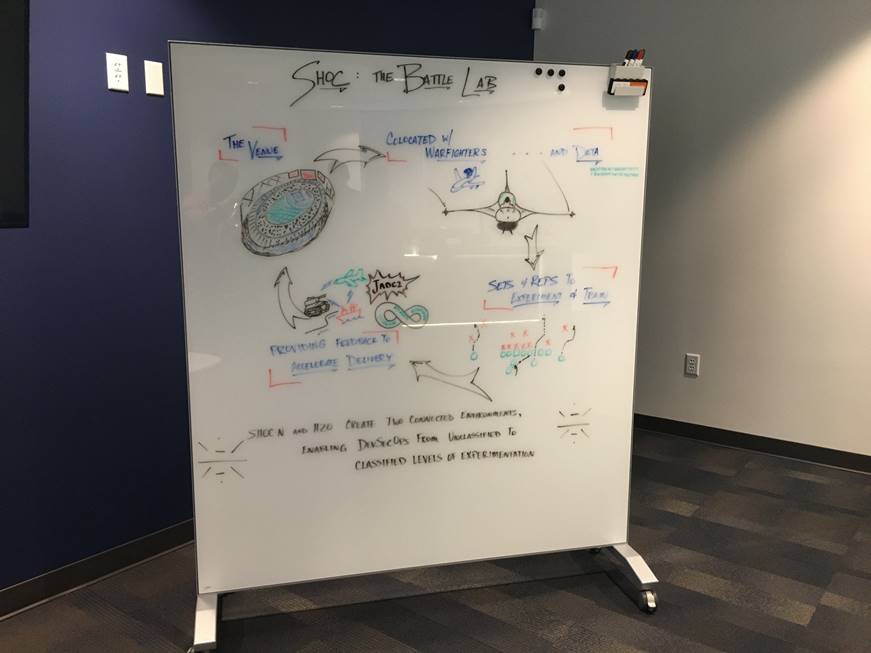 SHOC: THE BATTLE LAB
THE VENUE
COLOCATED W/
WARFIGHTERS
... AND DATA
SETS & REPS TO
EXPERIMENT & TRAIN
JADC2
PROVIDING FEEDBACK TO
ACCELERATE DELIVERY
SHOC N AND H20 CREATE TWO CONNECTED ENVIRONMENTS,
ENABLING DEVSECOPS FROM UNCLASSIFIED TO
CLASSIFIED LEVELS OF EXPERIMENTATION